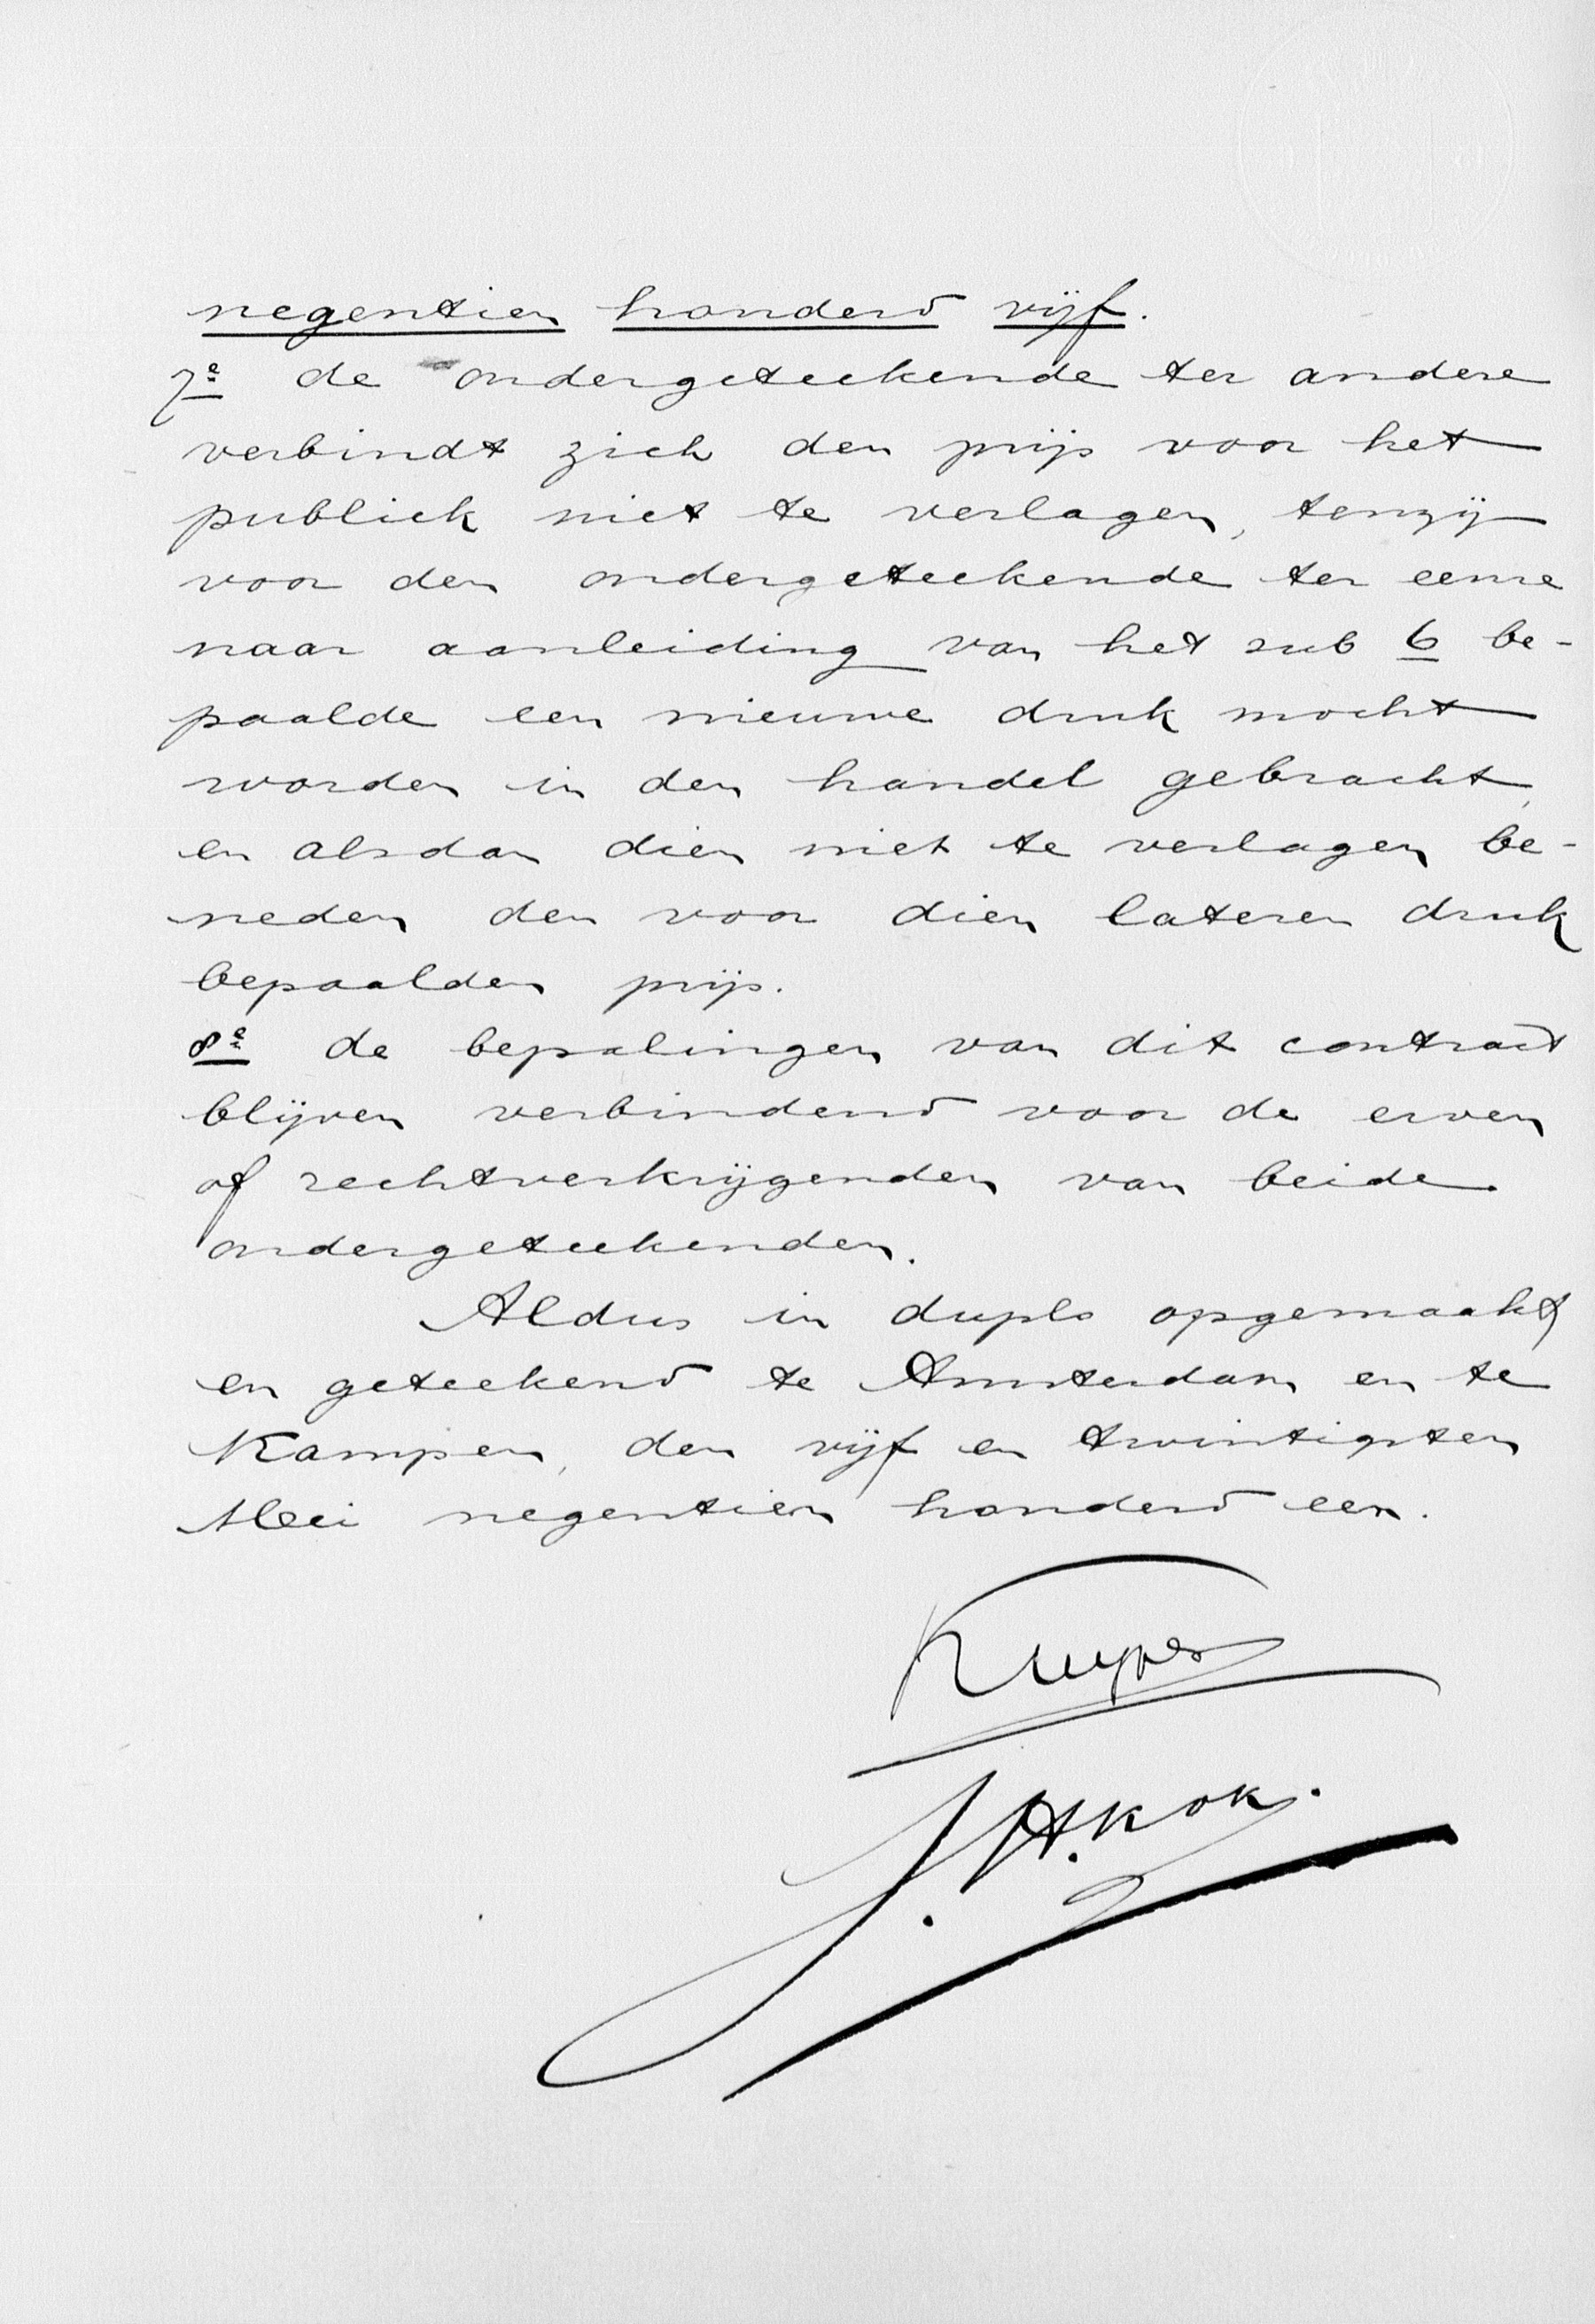 negentien honderd vijf.
7e de ondergeteekende ter andere
verbindt zich den prijs voor het
publiek niet te verlagen, tenzij
voor den ondergeteekende ter eenre
naar aanleiding van het sub 6 be-
paalde een nieuwe druk mocht
worden in den handel gebracht,
en alsdan dien niet te verlagen be-
neden den voor dien lateren druk
bepaalden prijs.
8e de bepalingen van dit contract
blijven verbindend voor de erven
of rechtverkrijgenden van beide
ondergeteekenden.
Aldus in duplo opgemaakt
en geteekend te Amsterdam en te
Kampen, den vijf en twintigsten
Mei negentien honderd een.
Kuyper
J. H. Kok.